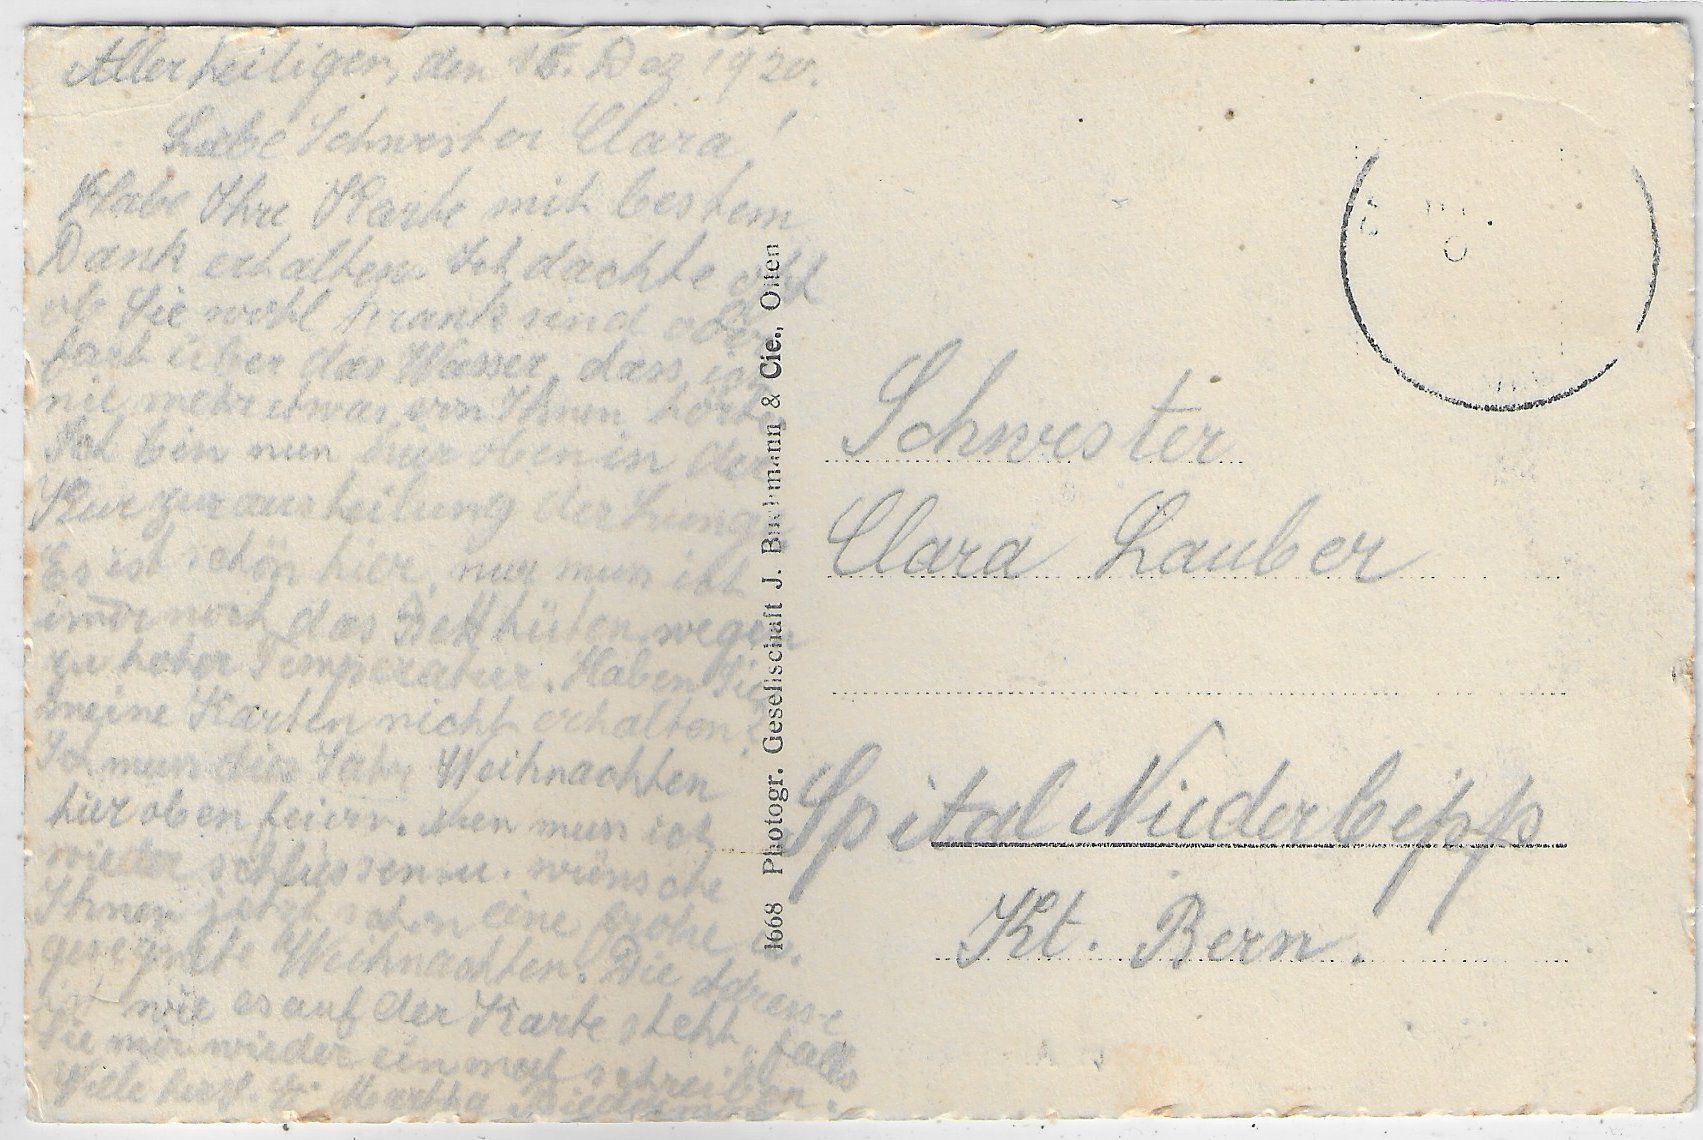 Allerheiligen, den 15. Dez 1920.
Liebe Schwester Clara!
Habe Ihre Karte mit bestem
Dank erhalten. Ich dachte oft
ob Sie wohl krank sind oder
fort über das Wasser, dass ich
nie mehr etwas von Ihnen hörte
Ich bin nun hier oben in der
Kur zur ausheilung der Lunge
Es ist schön hier, nur muss ich
immer noch das Bett hüten wegen
zu hoher Temperatur. Haben Sie
meine Karten nicht erhalten?
Ich muss dies Jahr Weihnachten
hier oben feiern. Nun muss ich
wieder schliessen u. wünsche
Ihnen jetzt schon eine frohe u.
gesegnete Weihnachten. Die Adresse
ist wie es auf der Karte steht, falls
Sie mir wieder ein mal schreiben.
Viele herzl. Gr. Martha
1668 Photogr. Gesellschaft J. Buchmann & Cie., Olten
Schwester
Clara Lauber
Spital Niederbipp
Kt. Bern.